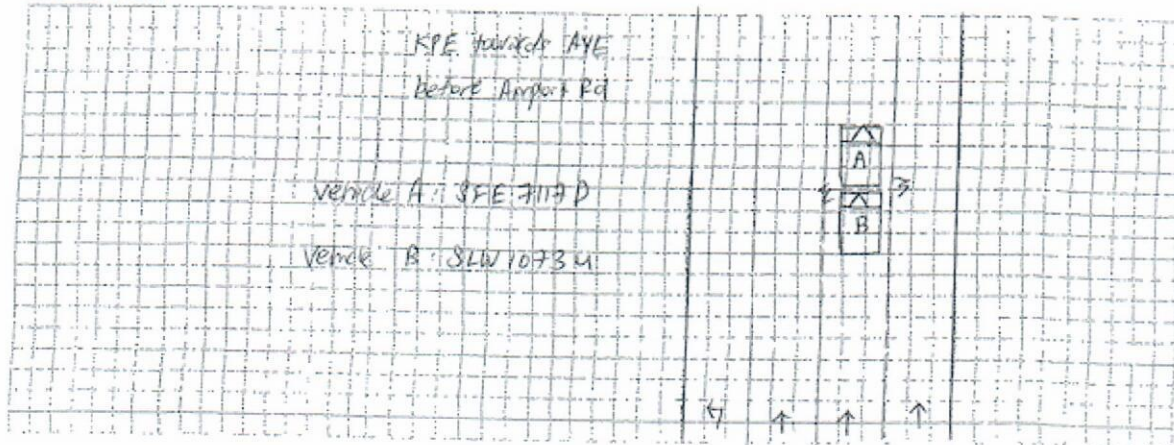 KPE towards AYE
before Airport Rd
A
Vehicle A: SFE 7117 D
B
Vehicle B: SLW 1073 M